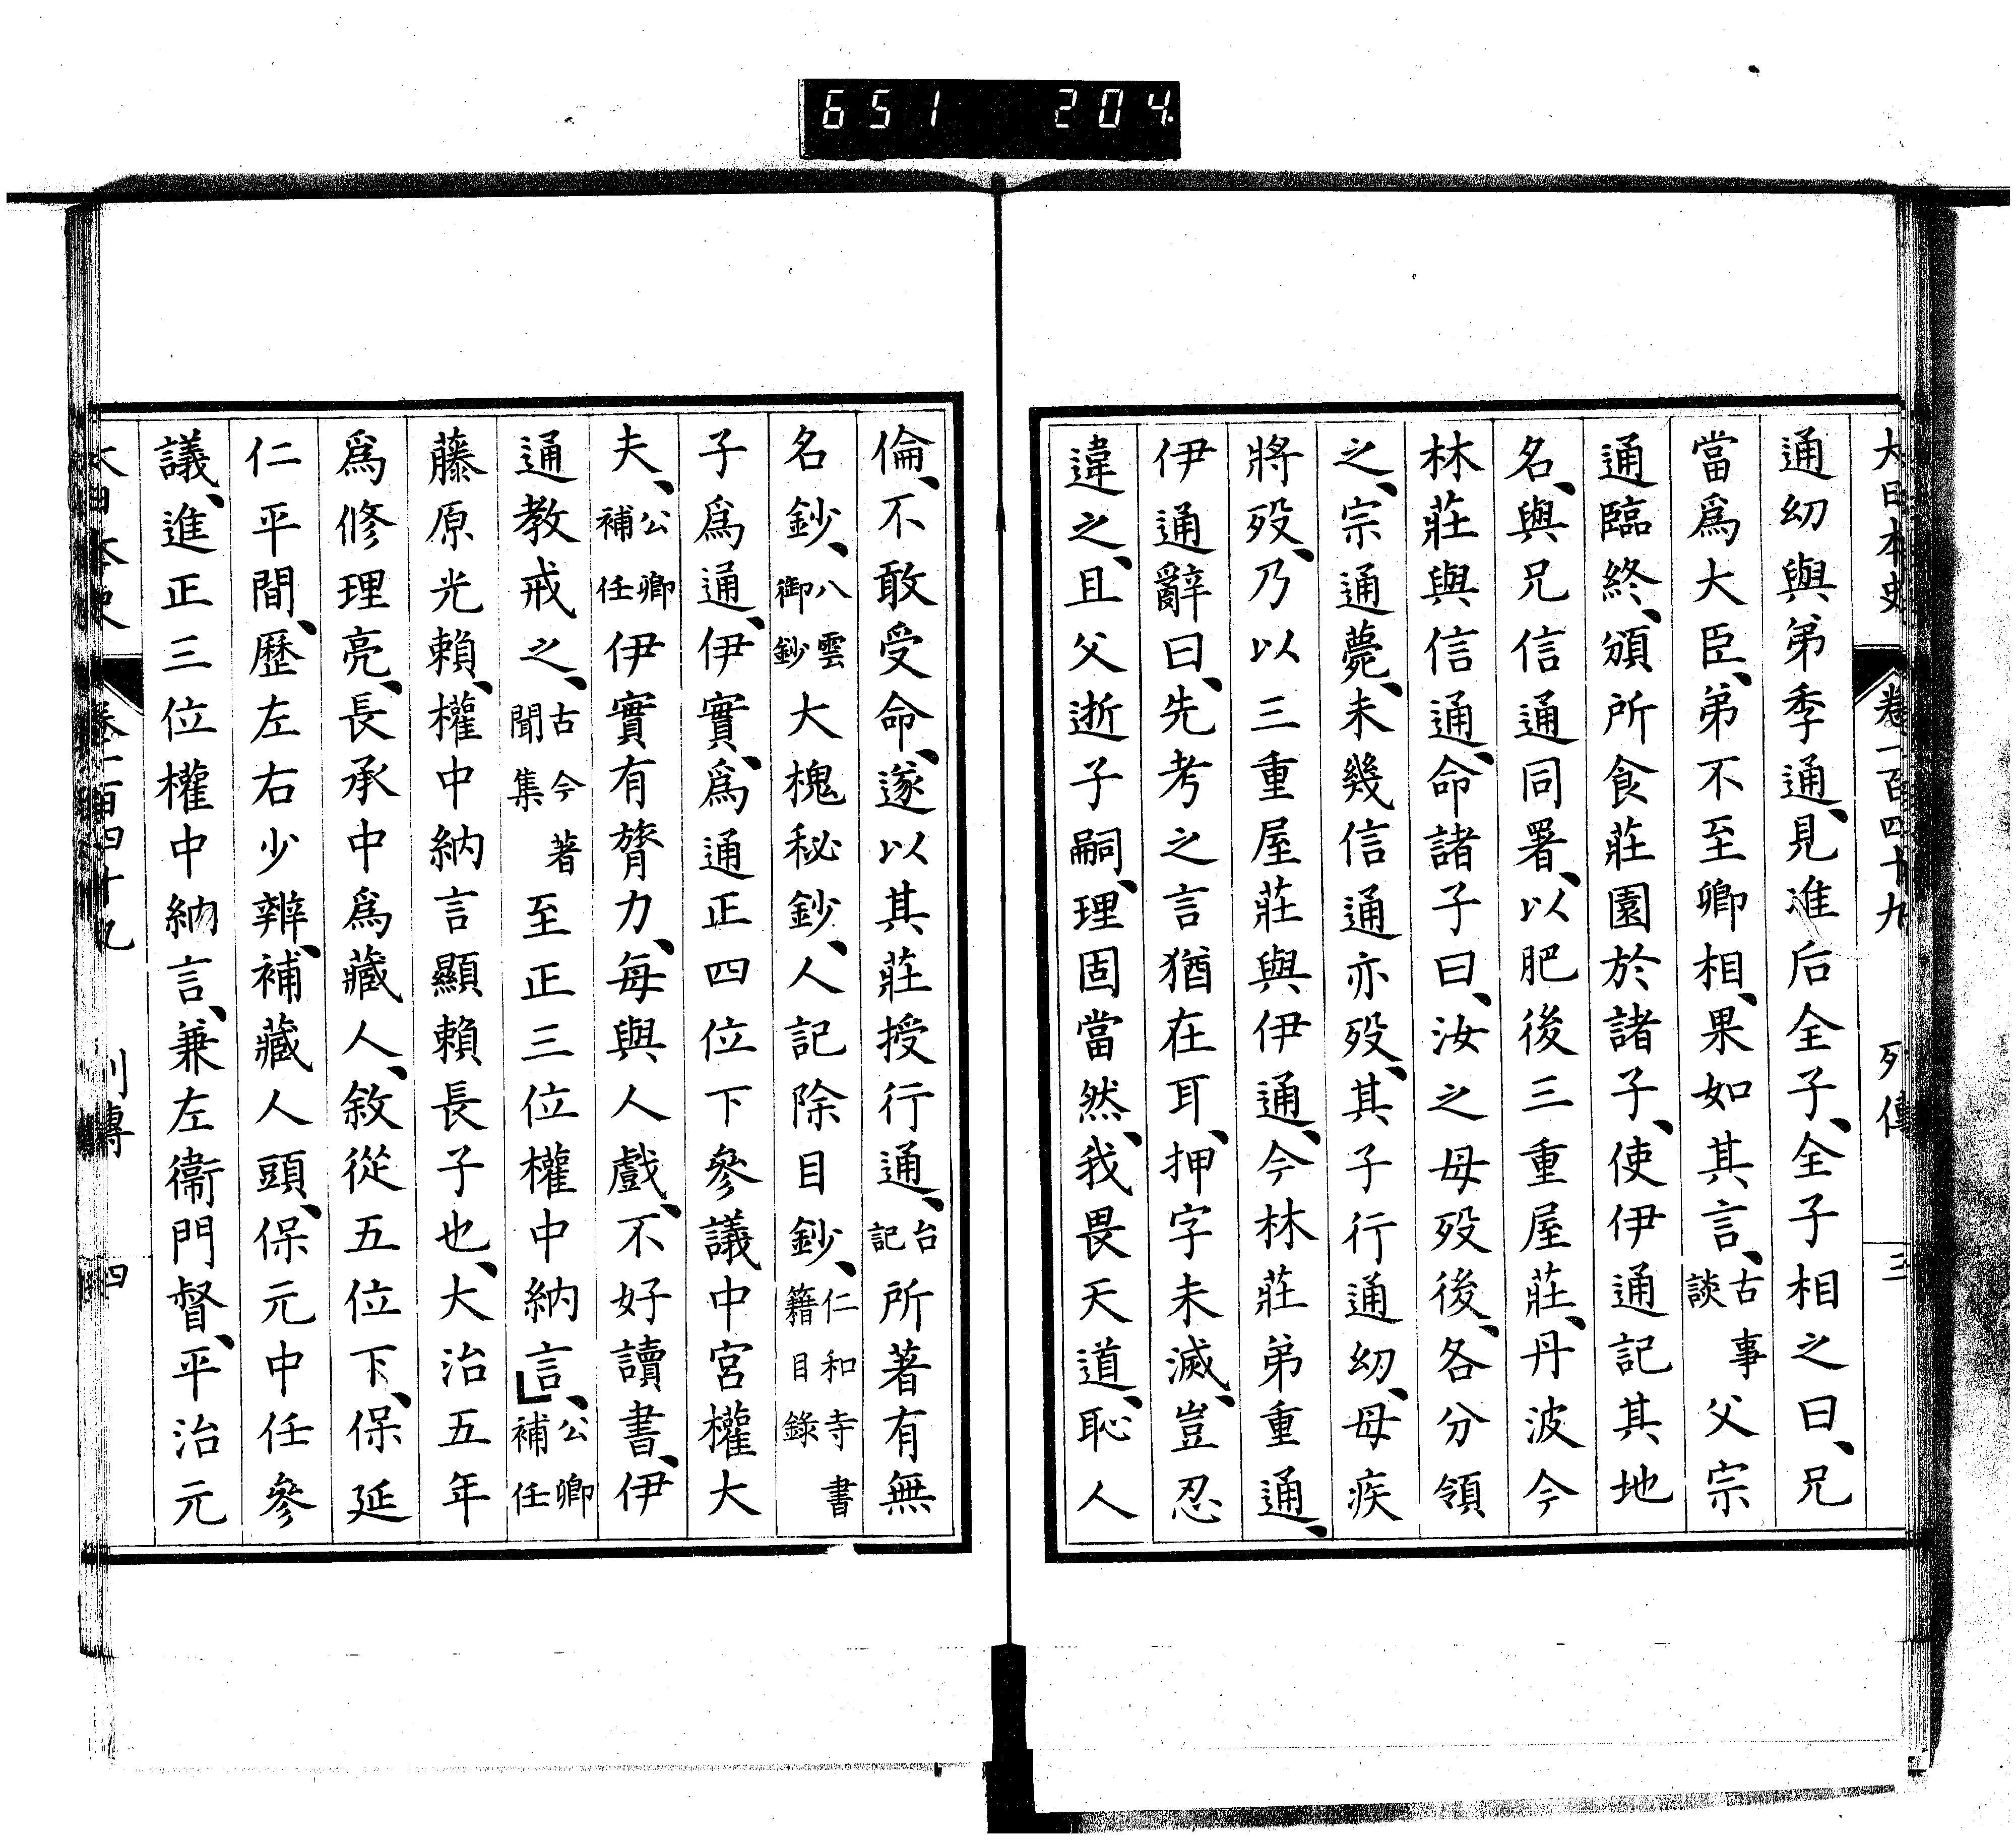 651 204.
大日本史 卷一百四十九 列傳 三
通幼與弟季通、見准后全子、全子相之曰、兄
當爲大臣、弟不至卿相、果如其言、古事談父宗
通臨終、頒所食莊園於諸子、使伊通記其地
名、與兄信通同署、以肥後三重屋莊、丹波今
林莊與信通、命諸子曰、汝之母歿後、各分領
之、宗通薨、未幾信通亦歿、其子行通幼、母疾
將歿、乃以三重屋莊與伊通、今林莊弟重通、
伊通辭曰、先考之言猶在耳、押字未滅、豈忍
違之、且父逝子嗣、理固當然、我畏天道、恥人
倫、不敢受命、遂以其莊授行通、台記所著有無
名鈔、八雲御鈔大槐秘鈔、人記除目鈔、仁和寺書籍目錄
子爲通、伊實、爲通正四位下參議中宮權大
夫、公卿補任伊實有膂力、每與人戲、不好讀書、伊
通教戒之、古今著聞集至正三位權中納言、公卿補任
藤原光賴、權中納言顯賴長子也、大治五年
爲修理亮、長承中爲藏人、敘從五位下、保延
仁平間、歷左右少辨、補藏人頭、保元中任參
議、進正三位權中納言、兼左衞門督、平治元
大日本史 卷一百四十九 列傳 四